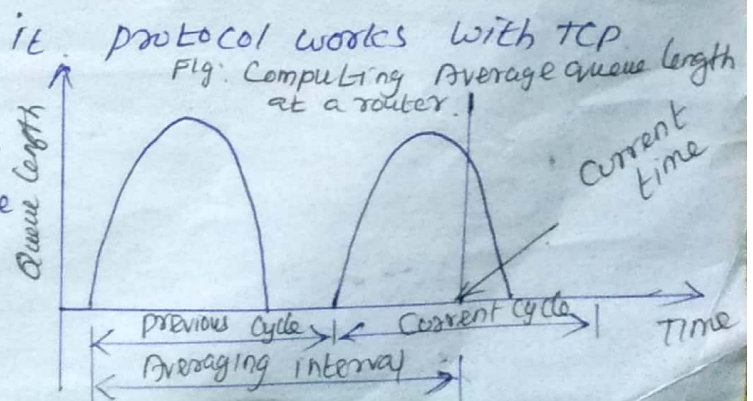 it. protocol works with TCP
Fig: Computing Average queue length
at a router.
Queue length
current
time
e
previous cycle
Current cycle
Time
Averaging interval